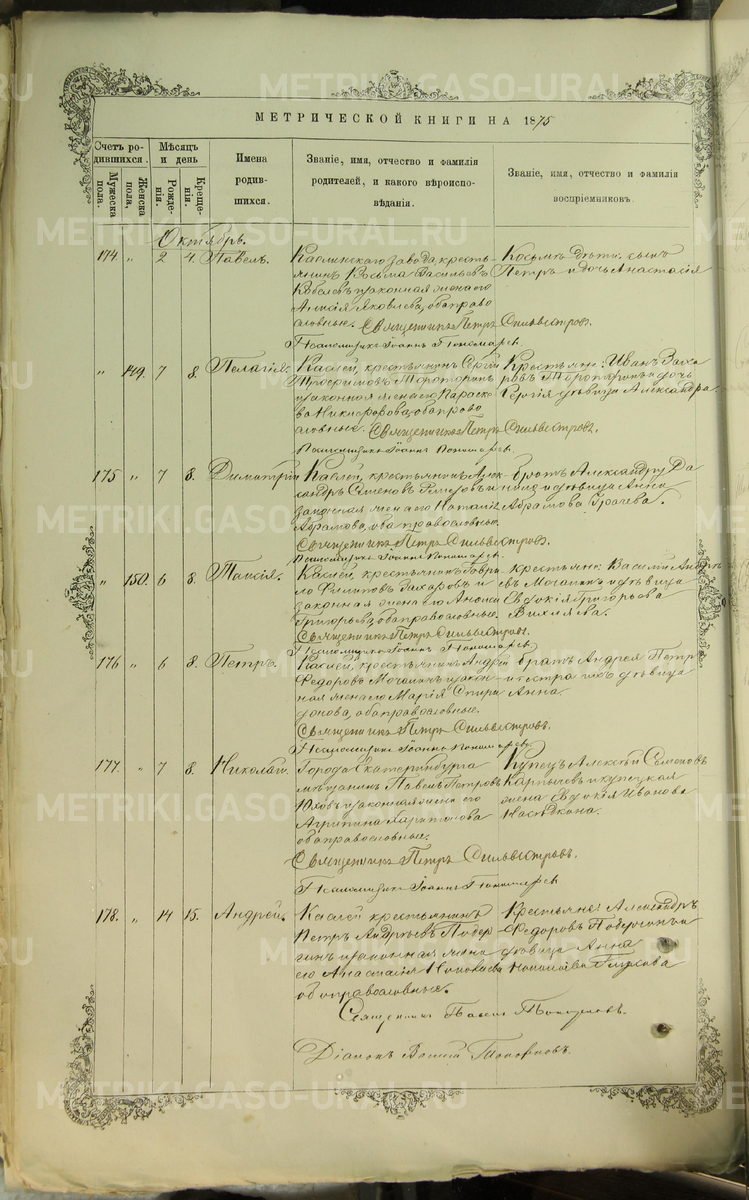 МЕТРИЧЕСКОЙ КНИГИ НА 1875
Счетъ родившихся.
Мужеска пола.
Женска пола.
Мѣсяцъ и день
Рожденія.
Крещенія.
Имена родившихся.
Званіе, имя, отчество и фамилія родителей, и какого вѣроисповѣданія.
Званіе, имя, отчество и фамилія воспріемниковъ.
Октябрь.
174. " 2 4. Павелъ.
Каслинскаго завода, кресть-
янинъ Козьма Васильевъ
и законная жена его
Яковлева, оба право
славные. Священникъ Петръ Сильвестровъ.
Псаломщикъ Іоаннъ Пономаревъ.
Козьмы дѣти: сынъ
Петръ и дочь Анастасія
" 149. 7 8. Пелагія.
Каслей, крестьянинъ Сергій
Трофимовъ
и законная жена его Параске
ва Никифорова, оба право
славные. Священникъ Петръ Сильвестровъ.
Псаломщикъ Іоаннъ Пономаревъ.
Крестьян: Иванъ Заха
ровъ и дочь
Сергія дѣвица Александра.
175 " 7 8. Димитрій
Каслей, крестьянинъ Алек-
сандръ Семеновъ и
законная жена его Наталія
Абрамова, оба православные.
Священникъ Петръ Сильвестровъ.
Псаломщикъ Іоаннъ Пономаревъ.
Братъ Александру
и дѣвица Анна
Абрамова Грачева.
" 150. 6 8. Таисія.
Каслей, крестьянинъ Гаври
ло Филиповъ Захаровъ и
законная жена его
Григорьева, оба православные.
Священникъ Петръ Сильвестровъ.
Псаломщикъ Іоаннъ Пономаревъ.
крестьян: Василій Андре
евъ и дѣвица
Евдокія Григорьева
176 " 6 8. Петръ.
Каслей, крестьянинъ Андрей
Федоровъ и закон-
ная жена его Марія Спири
донова, оба православные.
Священникъ Петръ Сильвестровъ.
Псаломщикъ Іоаннъ Пономаревъ.
братъ Андрея Петръ
и сестра ихъ дѣвица
Анна.
177. " 7 8. Николай.
Города Екатеринбурга
мѣщанинъ Павелъ Петровъ
и законная жена его
Агрипина Харитонова
оба православные.
Священникъ Петръ Сильвестровъ.
Псаломщикъ Іоаннъ Пономаревъ
Купецъ Алексѣй Семеновъ
и купецкая
жена Евдокія Иванова
178. " 14 15. Андрей.
Каслей крестьянинъ
Петръ Андреевъ
и законная жена
его Анастасія
оба православные.
Священникъ Павелъ
Діаконъ
Крестьяне: Александръ
Федоровъ
дѣвица Анна
METRIKI.GASO-URAL.RU